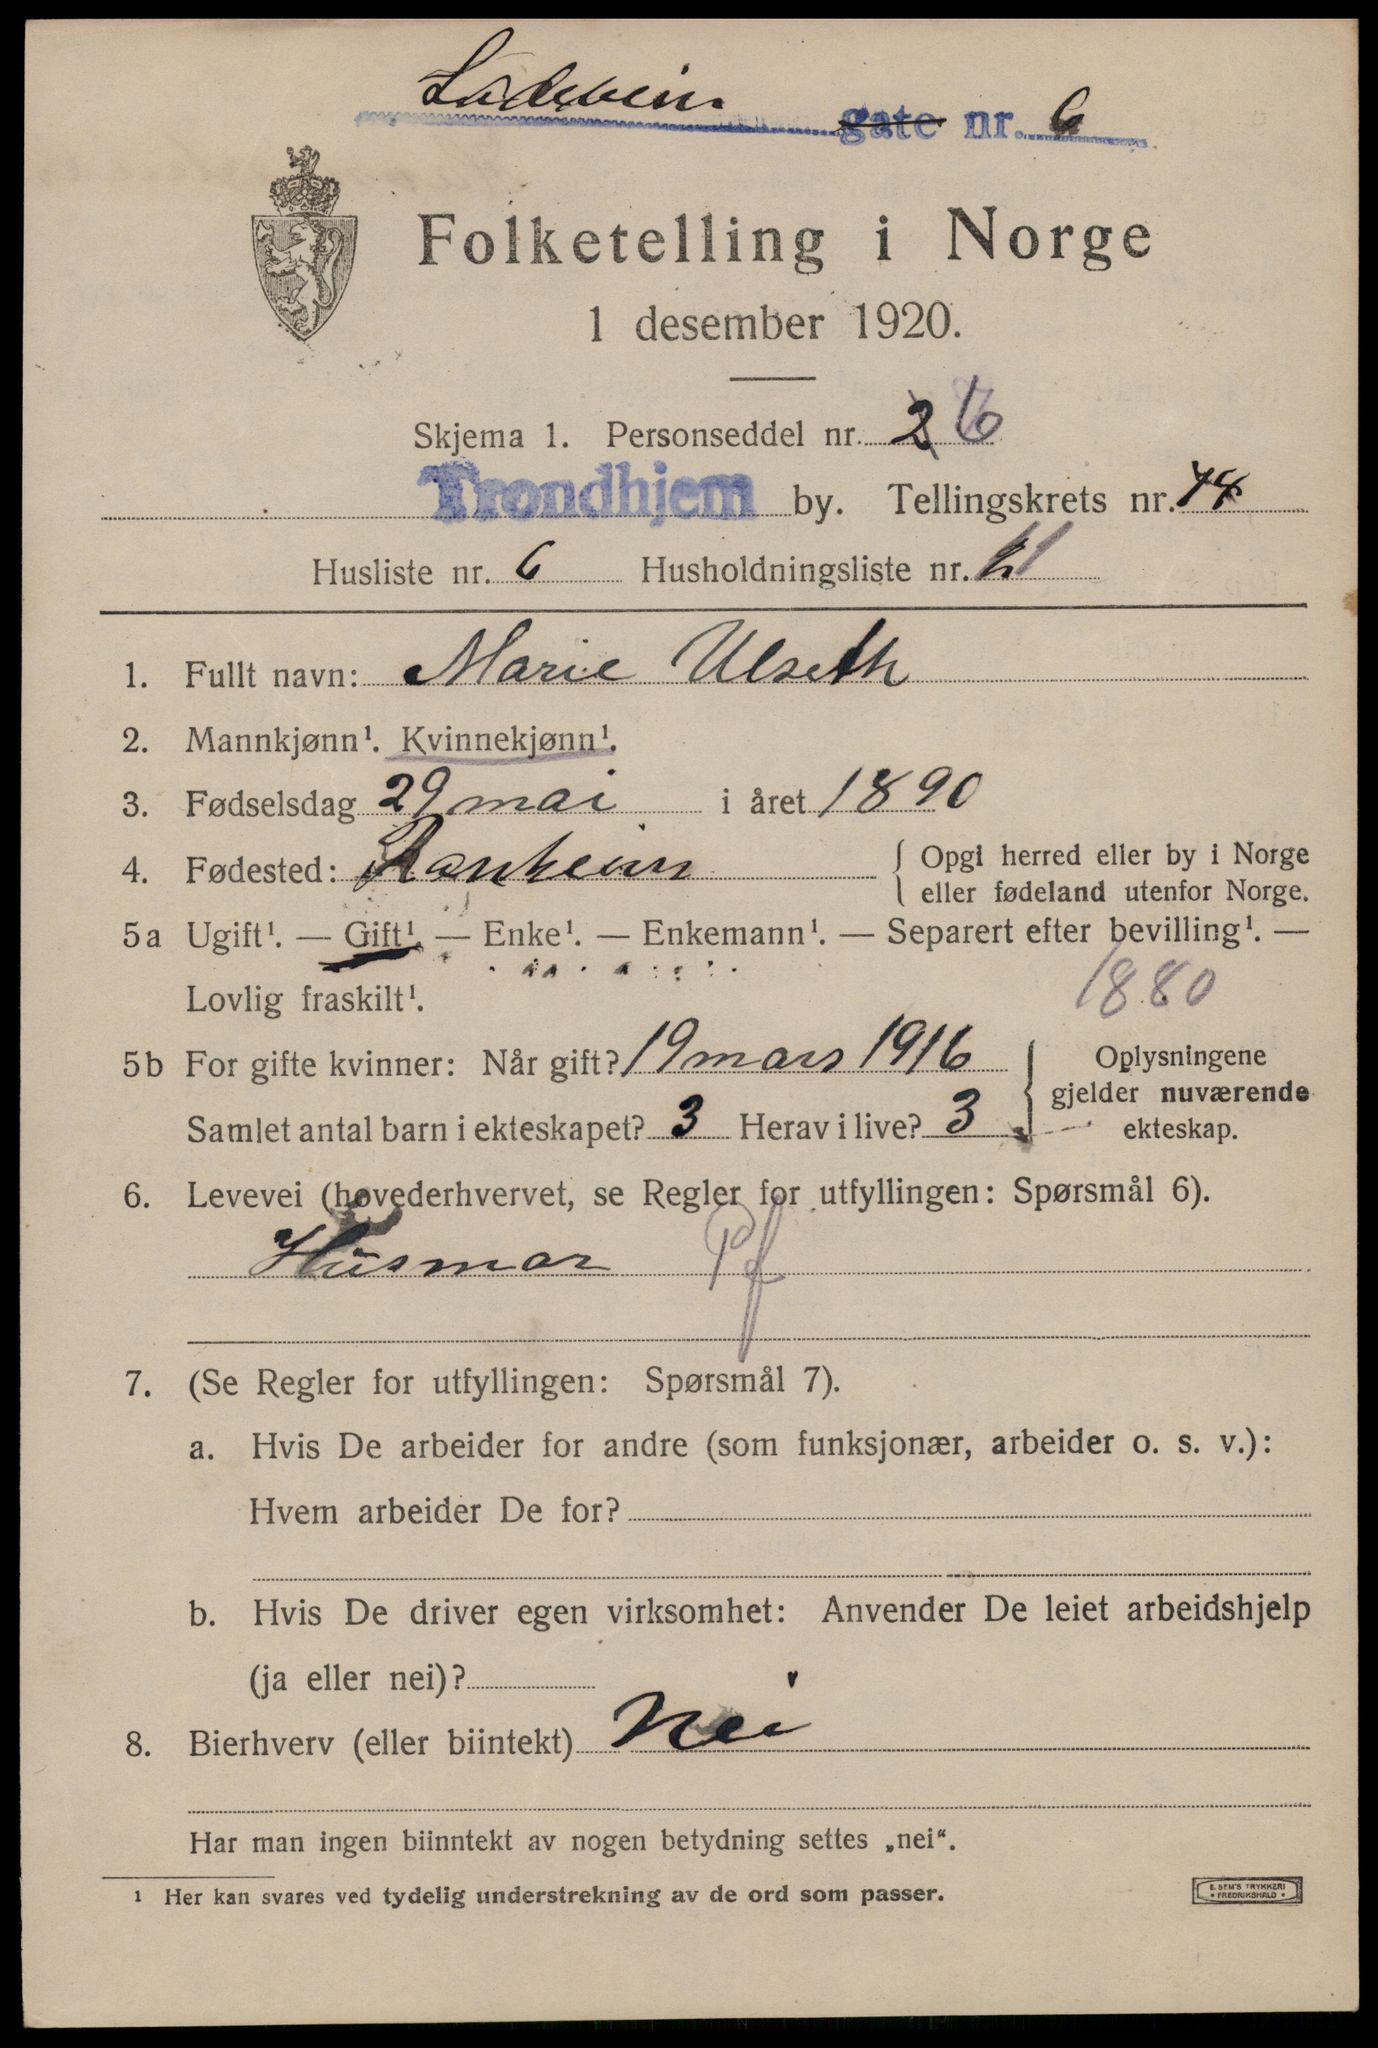 Ladevein gate nr. 6
Folketelling i Norge
1 desember 1920.
Skjema 1. Personseddel nr. 2 6
Trondhjem by. Tellingskrets nr. 44
Husliste nr. 6 Husholdningsliste nr. 11
1. Fullt navn: Marie Ulseth
2. Mannkjønn¹. Kvinnekjønn¹.
3. Fødselsdag 29 mai i året 1890
4. Fødested: Ranheim { Opgi herred eller by i Norge
eller fødeland utenfor Norge.
5a Ugift¹. — Gift¹. — Enke¹. — Enkemann¹. — Separert efter bevilling¹. —
Lovlig fraskilt¹. 1880
5b For gifte kvinner: Når gift? 19 mars 1916 Oplysningene
gjelder nuværende
Samlet antal barn i ekteskapet? 3 Herav i live? 3 ekteskap.
6. Levevei (hovederhvervet, se Regler for utfyllingen: Spørsmål 6).
Husmor Pf
7. (Se Regler for utfyllingen: Spørsmål 7).
a. Hvis De arbeider for andre (som funksjonær, arbeider o. s. v.):
Hvem arbeider De for?
b. Hvis De driver egen virksomhet: Anvender De leiet arbeidshjelp
(ja eller nei)?
8. Bierhverv (eller biintekt) Nei
Har man ingen biinntekt av nogen betydning settes „nei“.
¹ Her kan svares ved tydelig understrekning av de ord som passer.
E. SEM'S TRYKKERI
• FREDRIKSHALD •